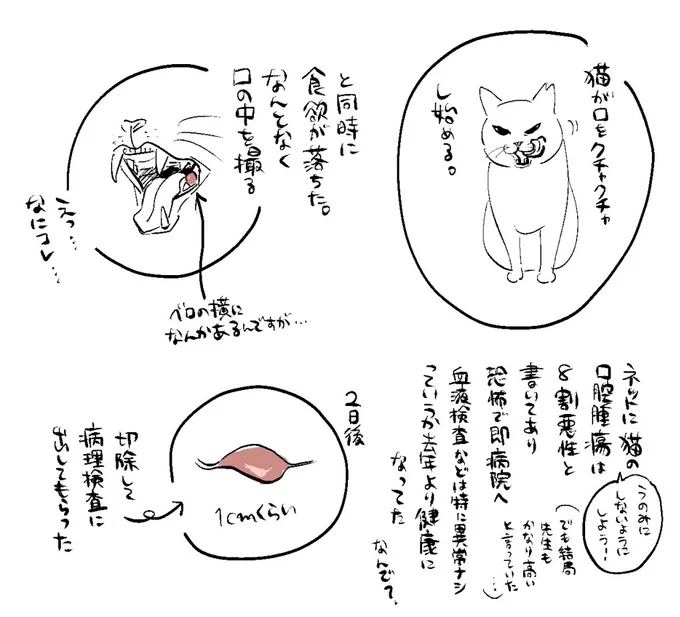 猫が口をクチャクチャ
し始める。
と同時に
食欲が落ちた。
なんとなく
口の中を撮る
えっ…
なにコレ…
ベロの横に
なんかあるんですが…
ネットに猫の
口腔腫瘍は
8割悪性と
書いてあり
恐怖で即病院へ
うのみに
しないように
しよう!
(でも結局
先生も
かなり高い
と言っていた…)
血液検査などは特に異常ナシ
っていうか去年より健康に
なってた
なんで?
2日後
1cmくらい
切除して
病理検査に
出してもらった